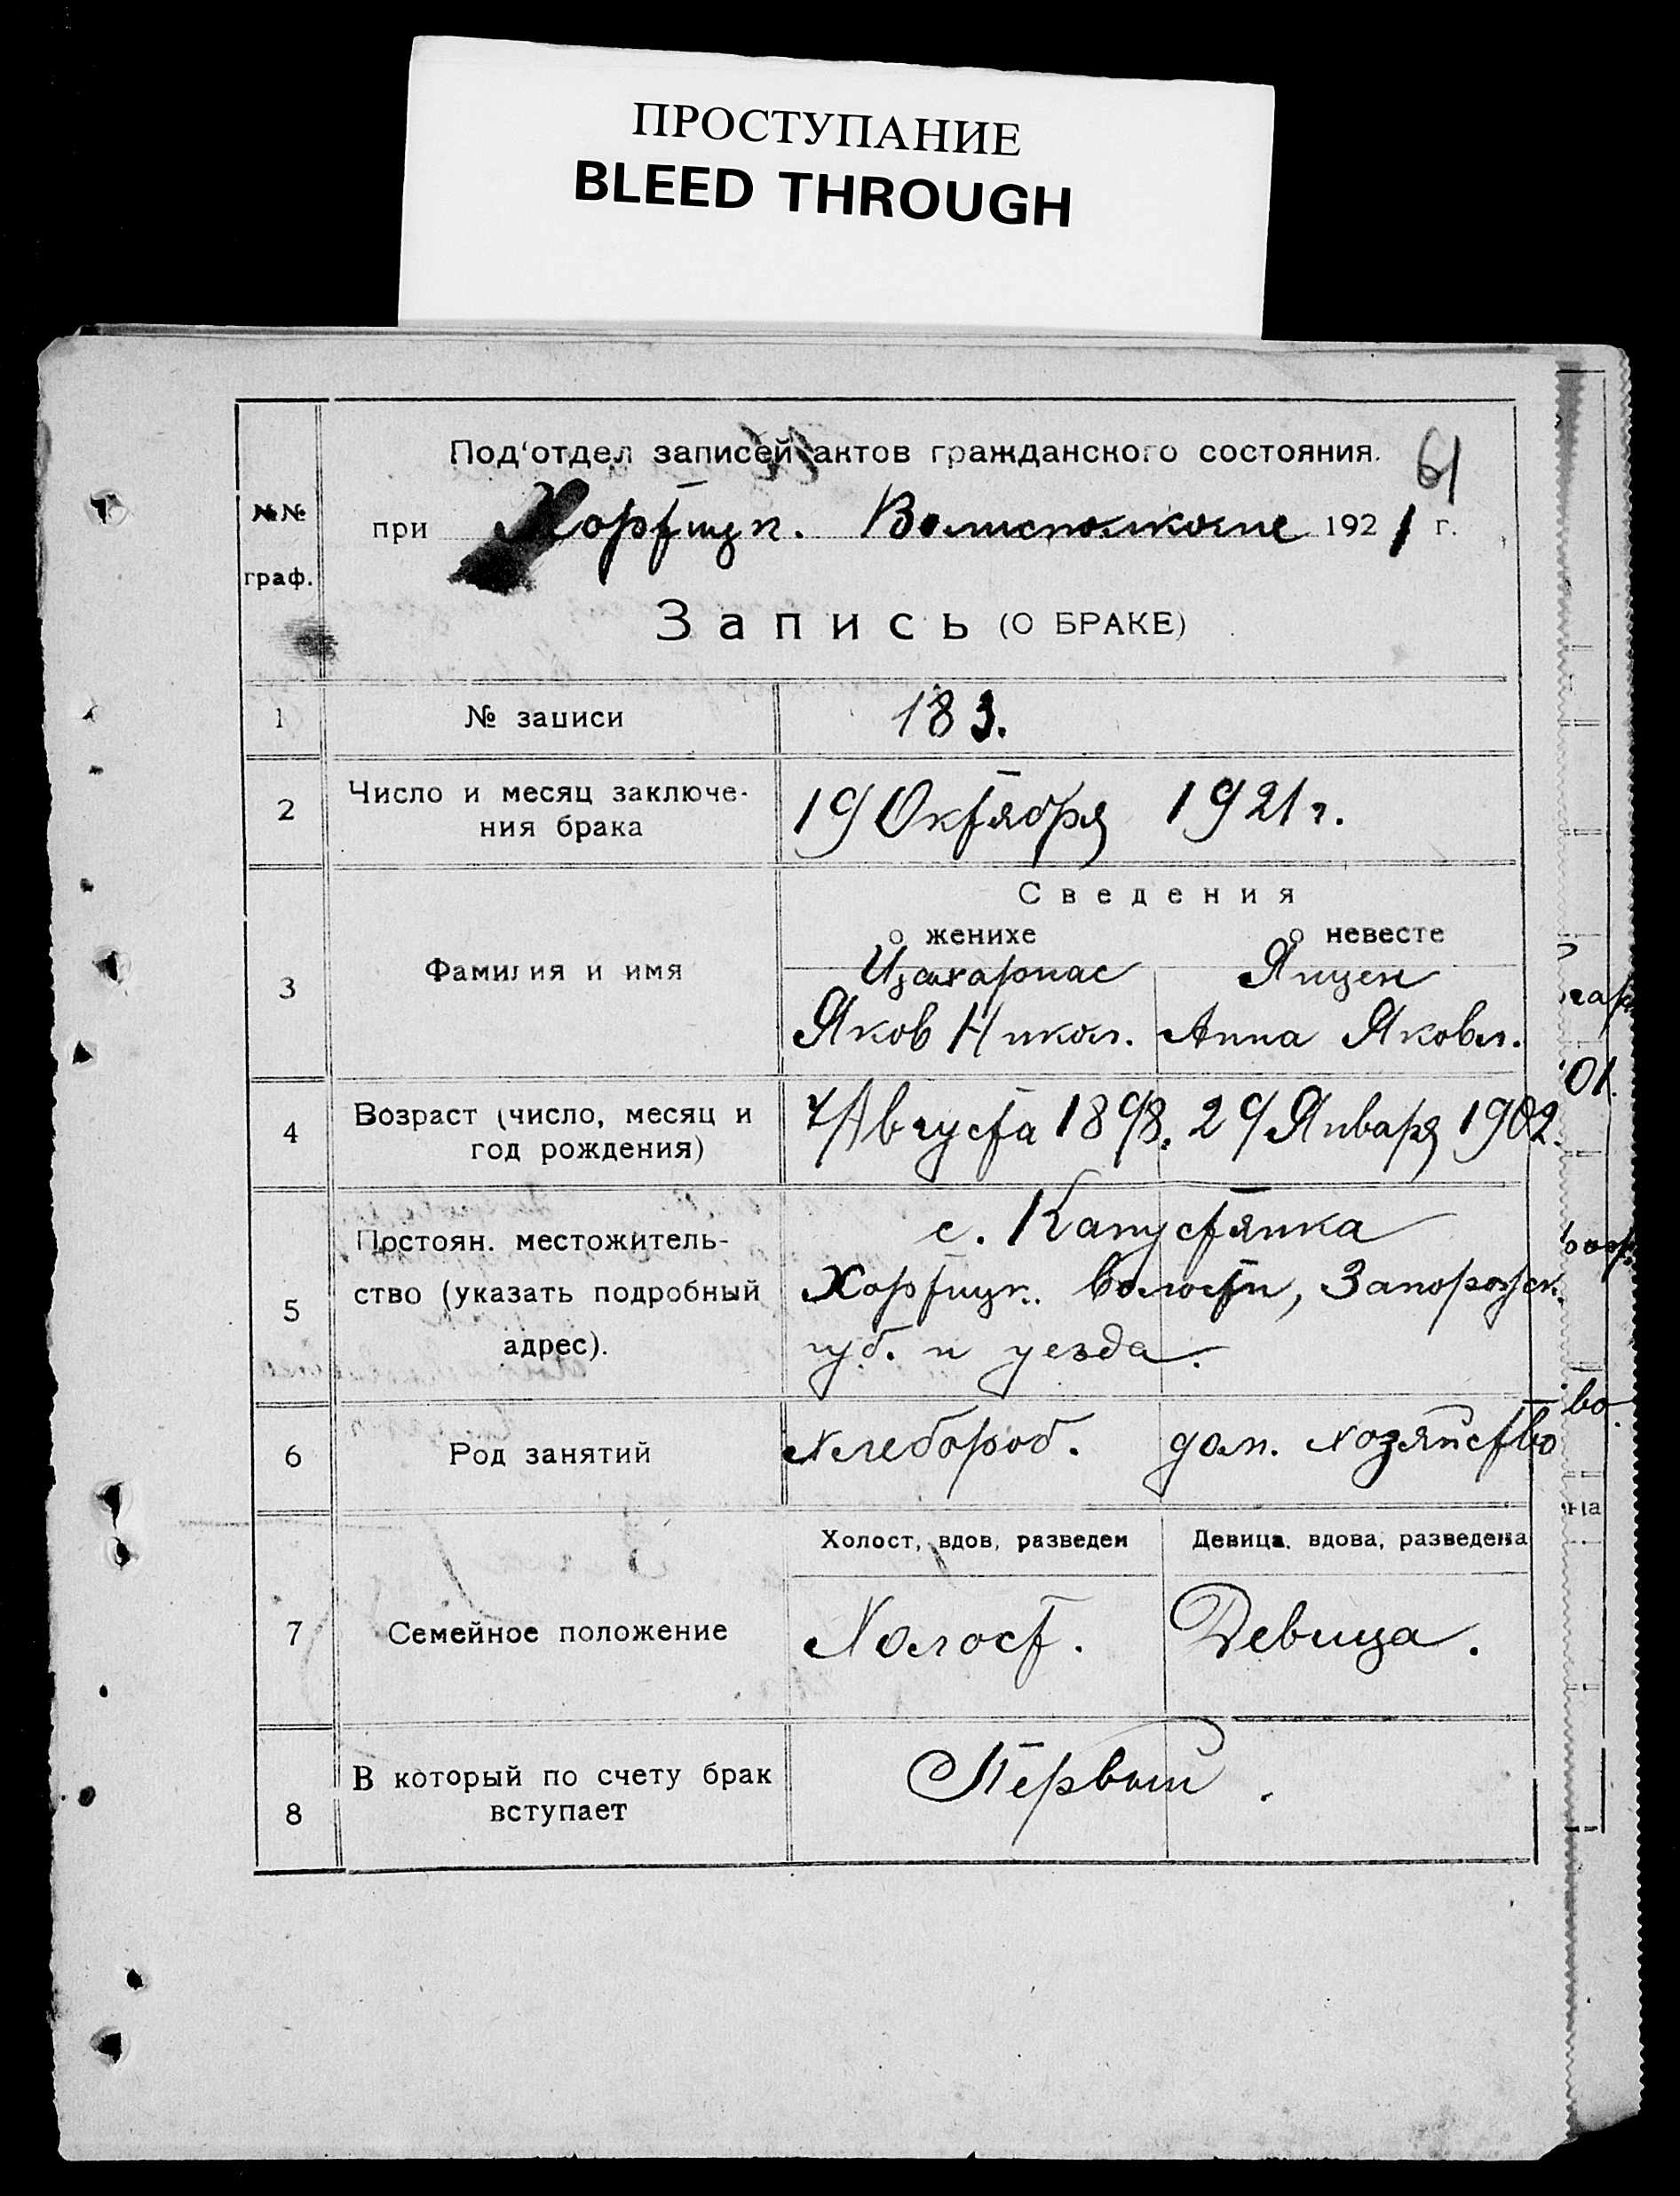 ПРОСТУПАНИЕ
BLEED THROUGH
Под'отдел записей актов гражданского состояния.
61
№№
граф.
при Хортицк. Волисполкоме 1921 г.
Запись (О БРАКЕ)
1 № записи 183.
2 Число и месяц заключе-
ния брака
19 Октября 1921 г.
Сведения
о женихе о невесте
3 Фамилия и имя
Янцен
Яков Никол. Анна Яковл.
4 Возраст (число, месяц и
год рождения)
7 Августа 1898. 29 Января 1902.
5 Постоян. местожитель-
ство (указать подробный
адрес).
с. Капустянка
Хортицк. волости, Запорожск.
губ. и уезда.
6 Род занятий Хлебороб. дом. хозяйство
Холост, вдов, разведен Девица, вдова, разведена
7 Семейное положение Холост. Девица.
8 В который по счету брак
вступает
Первый.